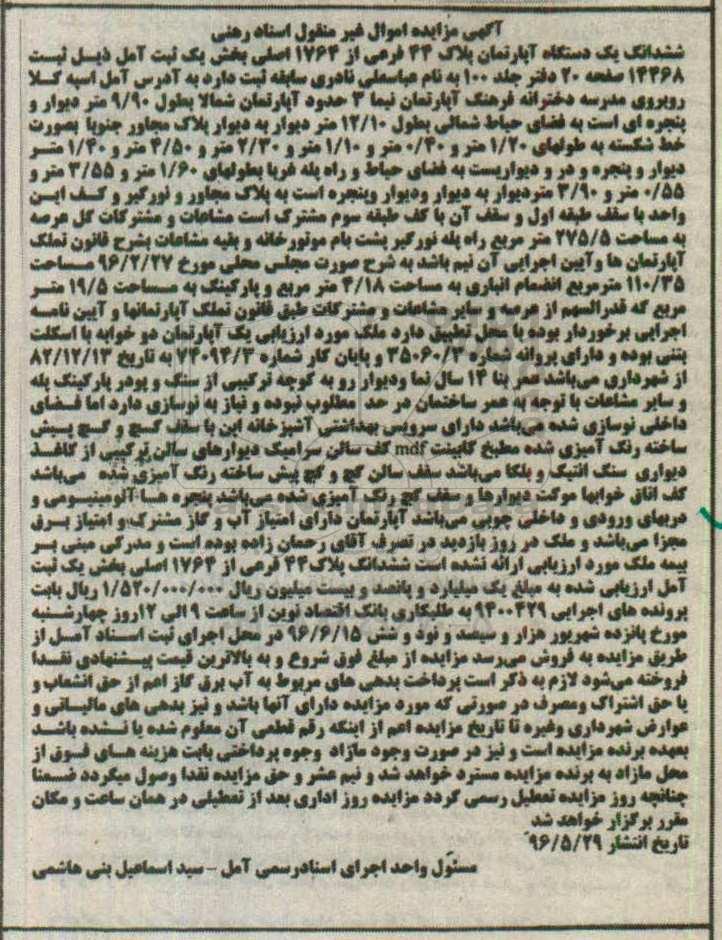 آگهی مزایده اموال غیر منقول اسناد رهنی
ششدانگ یک دستگاه آپارتمان پلاک ۴۴ فرعی از ۱۷۶۴ اصلی بخش یک ثبت آمل ذیل ثبت
۱۴۴۶۸ صفحه ۲۰ دفتر جلد ۱۰۰ به نام عباسعلی نادری سابقه ثبت دارد به آدرس آمل اسپه کلا
روبروی مدرسه دخترانه فرهنگ آپارتمان نیما ۳ حدود آپارتمان شمالا بطول ۹/۹۰ متر دیوار و
پنجره ای است به فضای حیاط شمالی بطول ۱۲/۱۰ متر دیوار به دیوار پلاک مجاور جنوبا بصورت
خط شکسته به طولهای ۱/۲۰ متر و ۰/۴۰ متر و ۱/۱۰ متر و ۲/۳۰ متر و ۴/۵۰ متر و ۱/۴۰ متر
دیوار و پنجره و در و دیواریست به فضای حیاط و راه پله غربا بطولهای ۱/۶۰ متر و ۳/۵۵ متر و
۰/۵۵ متر و ۳/۹۰ متردیوار به دیوار ودیوار وپنجره است به پلاک مجاور و نورگیر و کف این
واحد با سقف طبقه اول و سقف آن با کف طبقه سوم مشترک است مشاعات و مشترکات کل عرصه
به مساحت ۲۷۵/۵ متر مربع راه پله نورگیر پشت بام موتورخانه و بقیه مشاعات بشرح قانون تملک
آپارتمان ها وآیین اجرایی آن نیم باشد به شرح صورت مجلس محلی مورخ ۹۶/۲/۲۷ مساحت
۱۱۰/۳۵ مترمربع انضمام انباری به مساحت ۴/۱۸ متر مربع و پارکینگ به مساحت ۱۹/۵ متر
مربع که قدرالسهم از عرصه و سایر مشاعات و مشترکات طبق قانون تملک آپارتمانها و آیین نامه
اجرایی برخوردار بوده با محل تطبیق دارد ملک مورد ارزیابی یک آپارتمان دو خوابه با اسکلت
بتنی بوده و دارای پروانه شماره ۳۵۰۶۰/۳ و پایان کار شماره ۷۴۰۹۴/۳ به تاریخ ۸۲/۱۲/۱۳
از شهرداری می‌باشد عمر بنا ۱۴ سال نما ودیوار رو به کوچه ترکیبی از سنگ و پودر پارکینگ پله
و سایر مشاعات با توجه به عمر ساختمان در حد مطلوب نبوده و نیاز به نوسازی دارد اما فضای
داخلی نوسازی شده می‌باشد دارای سرویس بهداشتی آشپزخانه این با سقف گچ و گچ پیش
ساخته رنگ آمیزی شده مطبخ کابینت mdf کف سالن سرامیک دیوارهای سالن ترکیبی از کاغذ
دیواری سنگ انتیک و بلکا می‌باشد سقف سالن گچ و گچ پیش ساخته رنگ آمیزی شده می‌باشد
کف اتاق خوابها موکت دیوارها و سقف گچ رنگ آمیزی شده می‌باشد پنجره ها آلومینیومی و
دربهای ورودی و داخلی چوبی می‌باشد آپارتمان دارای امتیاز آب و گاز مشترک و امتیاز برق
مجزا می‌باشد و ملک در روز بازدید در تصرف آقای رحمان زاده بوده است و مدرکی مبنی بر
بیمه ملک مورد ارزیابی ارائه نشده است ششدانگ پلاک۴۴ فرعی از ۱۷۶۴ اصلی بخش یک ثبت
آمل ارزیابی شده به مبلغ یک میلیارد و پانصد و بیست میلیون ریال ۱/۵۲۰/۰۰۰/۰۰۰ ریال بابت
پرونده های اجرایی ۹۴۰۰۴۲۹ به طلبکاری بانک اقتصاد نوین از ساعت ۹ الی ۱۲روز چهارشنبه
مورخ پانزده شهریور هزار و سیصد و نود و شش ۹۶/۶/۱۵ در محل اجرای ثبت اسناد آمل از
طریق مزایده به فروش می‌رسد مزایده از مبلغ فوق شروع و به بالاترین قیمت پیشنهادی نقدا
فروخته می‌شود لازم به ذکر است پرداخت بدهی های مربوط به آب برق گاز اعم از حق انشعاب و
یا حق اشتراک ومصرف در صورتی که مورد مزایده دارای آنها باشد و نیز بدهی های مالیاتی و
عوارض شهرداری وغیره تا تاریخ مزایده اعم از اینکه رقم قطعی آن معلوم شده یا نشده باشد
بعهده برنده مزایده است و نیز در صورت وجود مازاد وجوه پرداختی بابت هزینه های فوق از
محل مازاد به برنده مزایده مسترد خواهد شد و نیم عشر و حق مزایده نقدا وصول میگردد ضمنا
چنانچه روز مزایده تعطیل رسمی گردد مزایده روز اداری بعد از تعطیلی در همان ساعت و مکان
مقرر برگزار خواهد شد
تاریخ انتشار ۹۶/۵/۲۹
مسئول واحد اجرای اسنادرسمی آمل - سید اسماعیل بنی هاشمی